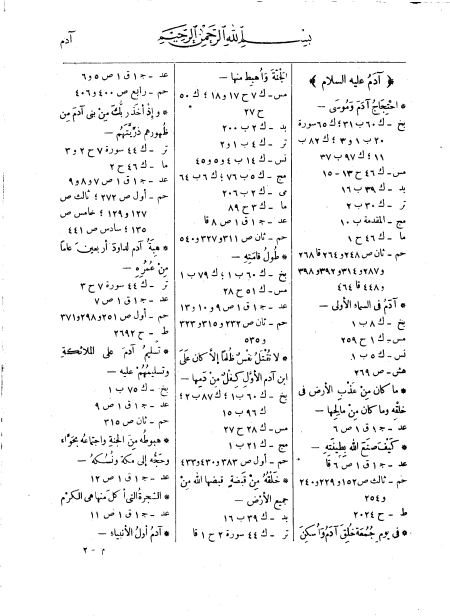 بِسْمِ اللهِ الرَّحْمٰنِ الرَّحِيْمِ
آدم
﴿ آدم عليه السلام ﴾
* احتجاج آدم وموسى —
بخ – ك ٦٠ ب ٣١؛ ك ٦٥ سورة
٢٠ ب ١ و ٣؛ ك ٨٢ ب
١١؛ ك ٩٧ ب ٣٧
مس – ك ٤٦ ح ١٣ – ١٥
بد – ك ٣٩ ب ١٦
تر – ك ٣٠ ب ٢
مج – المقدمة ب ١٠
ما – ك ٤٦ ح ١
حم – ثان ص ٢٤٨ و ٢٦٤ قا ٢٦٨
و ٢٨٧ و ٣١٤ و ٣٩٢ و ٣٩٨
و ٤٤٨ قا ٤٦٤
* آدم فى السماء الأولى –
بخ – ك ٨ ب ١
مس – ك ١ ح ٢٥٩
نس – ك ٥ ب ١
هش – ص ٢٦٩
* ما كان من عذب الأرض فى
خلقه وما كان من مالحها –
عد – ج ١ ق ١ ص ٦
* كيف صنع الله طينته –
عد – ج ١ ق ١ ص ٦ قا
حم – ثالث ص ١٥٢ و ٢٢٩ و ٢٤٠
و ٢٥٤
ط – ح ٢٠٢٤
* فى يوم جمعة خلق آدم وأسكن
الجنة وأهبط منها –
مس – ك ٧ ح ١٧ و ١٨؛ ك ٥٠
ح ٢٧
بد – ك ٢ ب ٢٠٠
تر – ك ٤ ب ١ و ٢
نس – ك ١٤ ب ٤ و ٥ و ٤٥
مج – ك ٥ ب ٧٦؛ ك ٦ ب ٦٤
مى – ك ٢ ب ٢٠٦
ما – ك ٣ ح ٨٩
عد – ج ١ ق ١ ص ٨ قا
حم – ثان ص ٣١١ و ٣٢٧ و ٥٤٠
* طول قامته –
بخ – ك ٦٠ ب ١؛ ك ٧٩ ب ١
مس – ك ٥١ ح ٢٨
عد – ج ١ ق ١ ص ٩ و ١٠ و ١٣
حم – ثان ص ٢٣٢ و ٣١٥ و ٣٢٣
و ٥٣٥
* لا تقتل نفس ظلما إلا كان على
ابن آدم الأول كفل من دمها –
بخ – ك ٦٠ ب ١؛ ك ٨٧ ب ٢؛
ك ٩٦ ب ١٥
مس – ك ٢٨ ح ٢٧
مج – ك ٢١ ب ١
حم – أول ص ٣٨٣ و ٤٣٠ و ٤٣٣
* خلقه من قبضة قبضها الله من
جميع الأرض –
بد – ك ٣٩ ب ١٦
تر – ك ٤٤ سورة ٢ ح ١ قا
عد – ج ١ ق ١ ص ٥ و ٦
حم – رابع ص ٤٠٠ و ٤٠٦
* وإذ أخذ ربك من بنى آدم من
ظهورهم ذريتهم –
تر – ك ٤٤ سورة ٧ ح ٢ و ٣
ما – ك ٤٦ ح ٢
عد – ج ١ ق ١ ص ٧ و ٨ و ٩
حم – أول ص ٢٧٢؛ ثالث ص
١٢٧ و ١٢٩؛ خامس ص
١٣٥؛ سادس ص ٤٤١
* هبة آدم لداود أربعين عاما
من عمره –
تر – ك ٤٤ سورة ٧ ح ٣
عد – ج ١ ق ١ ص ٧
حم – أول ص ٢٥١ و ٢٩٨ و ٣٧١
ط – ح ٢٦٩٢
* تسليم آدم على الملائكة
وتسليمهم عليه –
بخ – ك ٧٥ ب ١
عد – ج ١ ق ١ ص ٩
حم – ثان ص ٣١٥
* هبوطه من الجنة واجتماعه بحواء
وحجه إلى مكة ونسكه –
عد – ج ١ ق ١ ص ١٢
* الشجرة التى أكل منها هى الكرم
عد – ج ١ ق ١ ص ١١
* آدم أول الأنبياء –
م – ٢